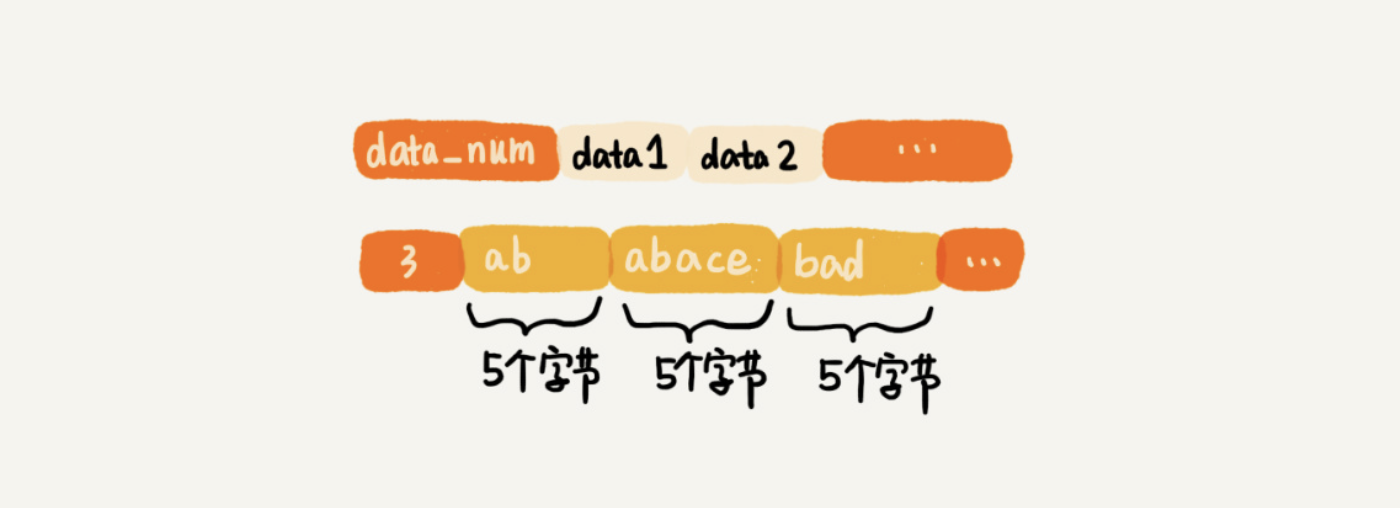 data_num data1 data2 ...
3 ab abace bad ...
5个字节 5个字节 5个字节